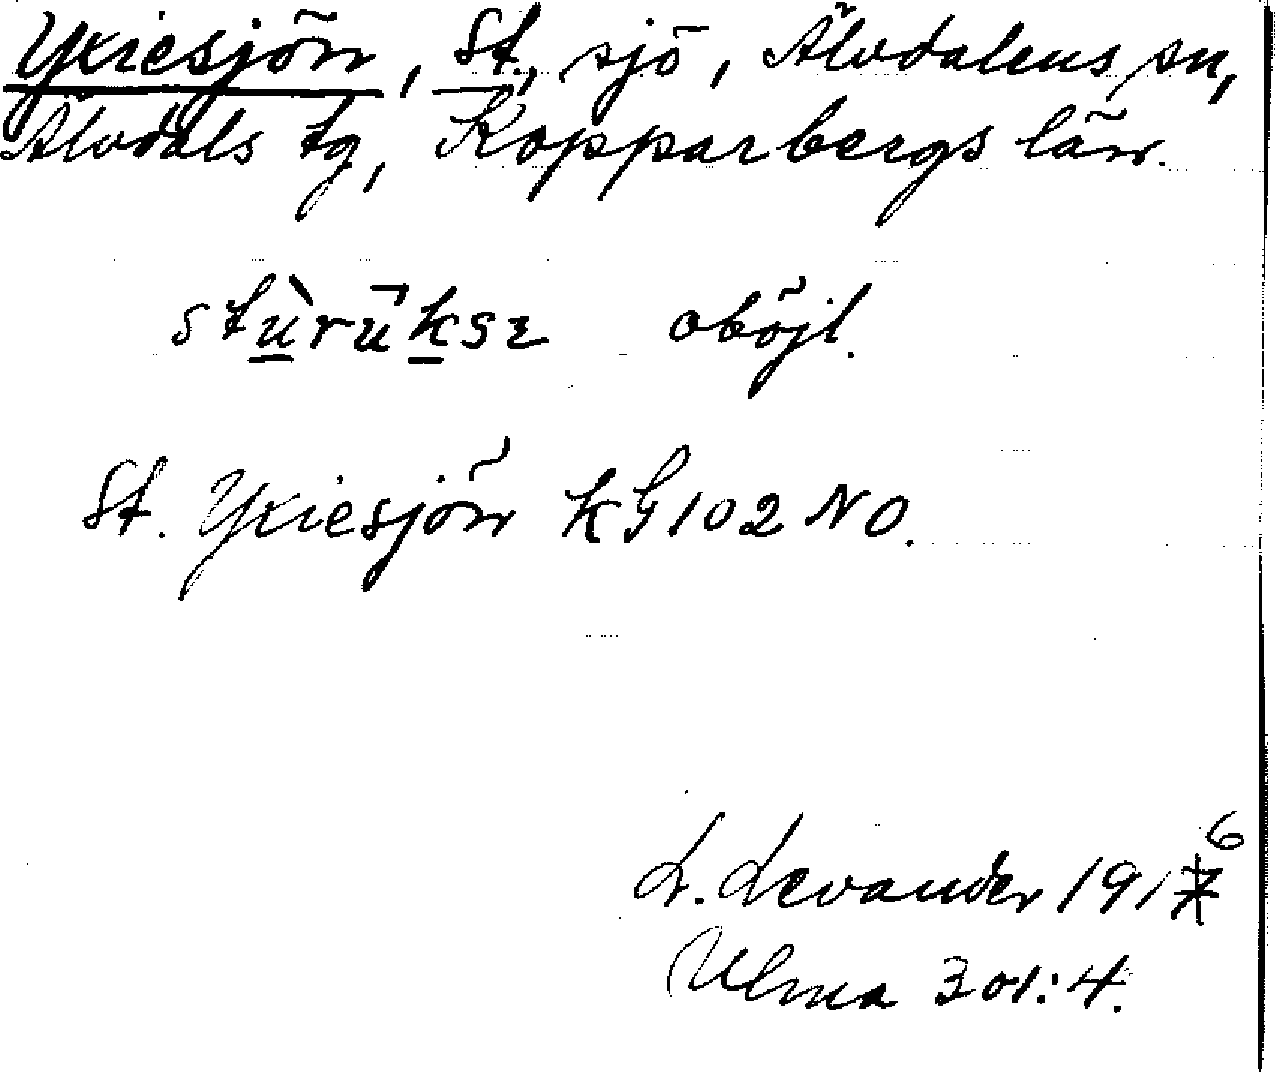 Yxiesjön, St., sjö, Älvdalens sn,
Älvdals tg, Kopparbergs län.
stù̲rūk̲sɛ oböjl.
St. Yxiesjön KG 102 NO.
L. Levander 1916
Ulma 301:4.